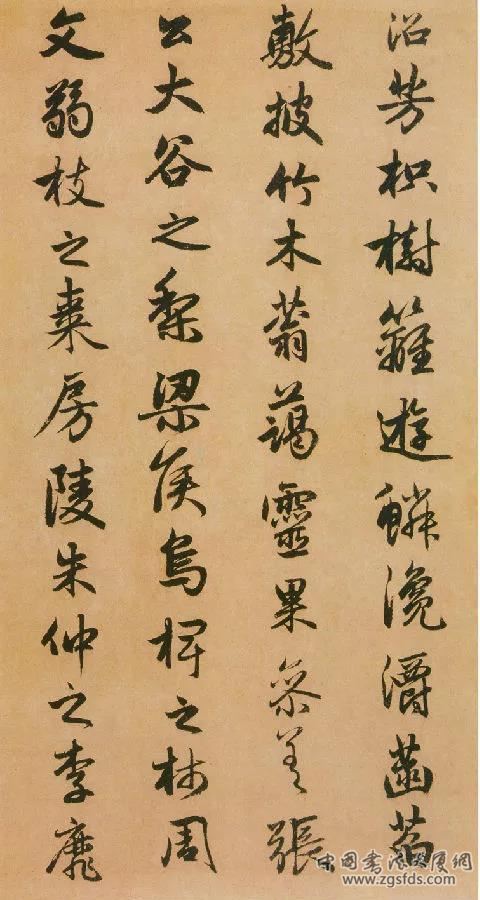 沼芳枳樹籬遊鱗瀺灂菡萏
敷披竹木蓊藹靈果參差張
公大谷之梨梁侯烏椑之柿周
文弱枝之棗房陵朱仲之李靡
中国书法大厦网
www.zgsfds.com